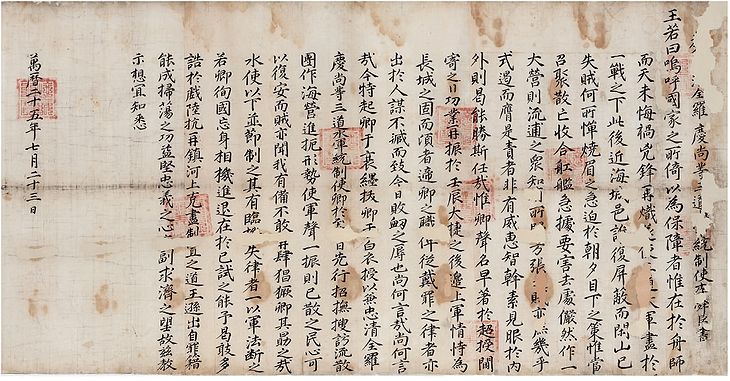 全羅慶尙等三道 統制使
王若曰嗚呼國家之所倚以為保障者惟在於舟師
而天未悔禍兇鋒再熾 大軍盡於
一戰之下此後近海城邑誰復屏蔽而閑山已
失賊何所憚燒眉之急迫於朝夕目下之策惟當
召聚散亡收合舡艦急據要害去處儼然作一
大營則流逋之衆知 所 方張 賊亦 幾乎
式遏而膺是責者非有威惠智幹素見服於內
外則曷能勝斯任哉惟卿聲名早著於超授閫
寄之日功業再振於壬辰大捷之後邊上軍情恃為
長城之固而頃者遞卿之職俾從戴罪之律者亦
出於人謀不臧而致今日敗衄之辱也尚何言哉尚何言
哉今特起卿于衰絰拔卿于白衣授以兼忠清全羅
慶尚等三道水軍統制使卿於至 日先行招撫搜訪流散
團作海營進扼形勢使軍聲一振則已散之民心可
以復安而賊亦聞我有備不敢再肆猖獗卿其勗之哉
水使以下並節制之其有臨 失律者一以軍法斷之
若卿徇國忘身相機進退在於已試之能予曷敢多
誥於戲陸抗再鎮河上克盡制置之道王遜出自罪籍
能成掃蕩之功益堅忠義之心 副求濟之望故茲教
示想宜知悉
萬曆二十五年七月二十三日